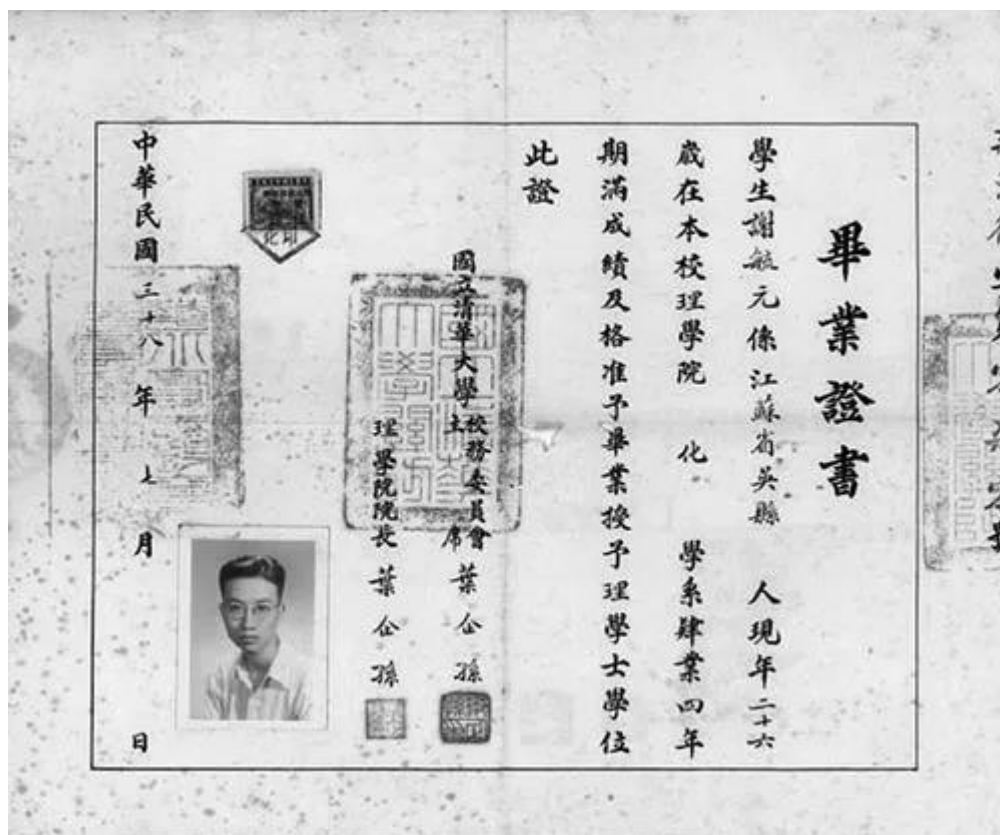 畢業證書
學生謝毓元係江蘇省吳縣 人現年二十六
歲在本校理學院 化 學系肄業四年
期滿成績及格准予畢業授予理學士學位
此證
國立清華大學校務委員會主席 葉企孫
理學院院長 葉企孫
中華民國三十八年 七 月 日